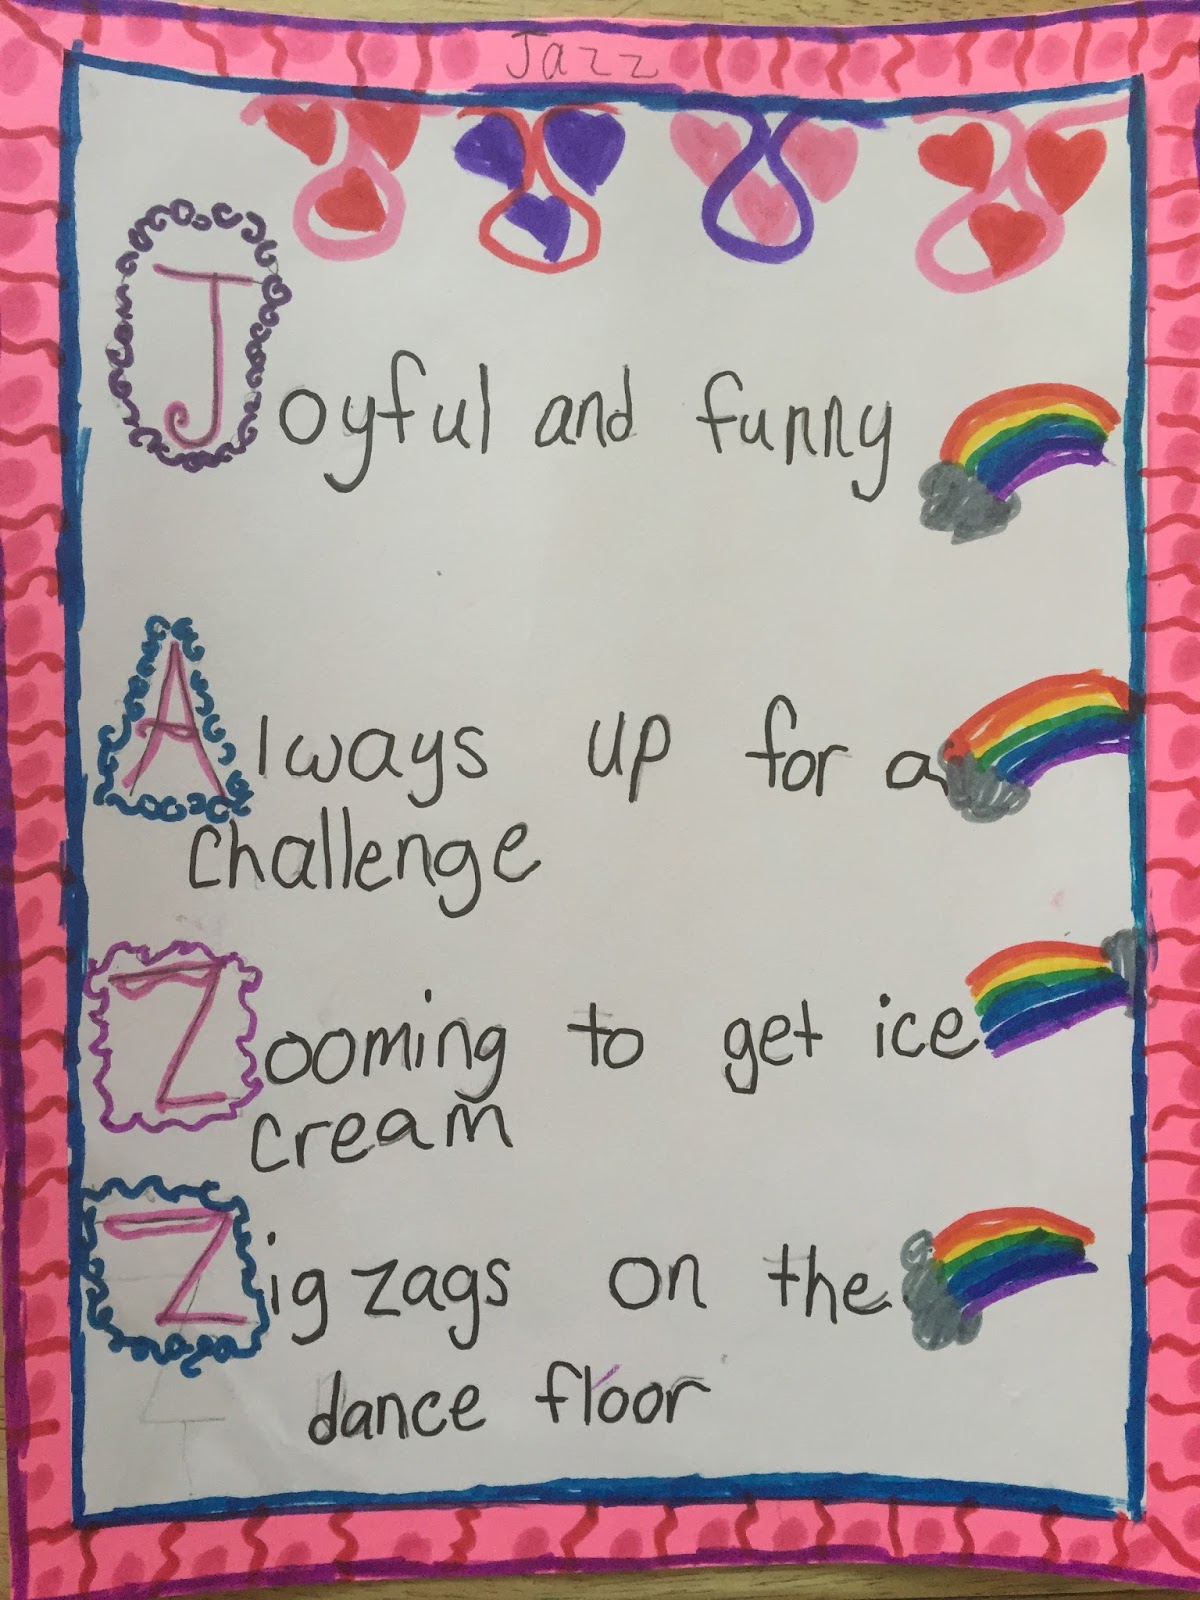 Jazz
Joyful and funny
Always up for a
challenge
Zooming to get ice
cream
Zig zags on the
dance floor